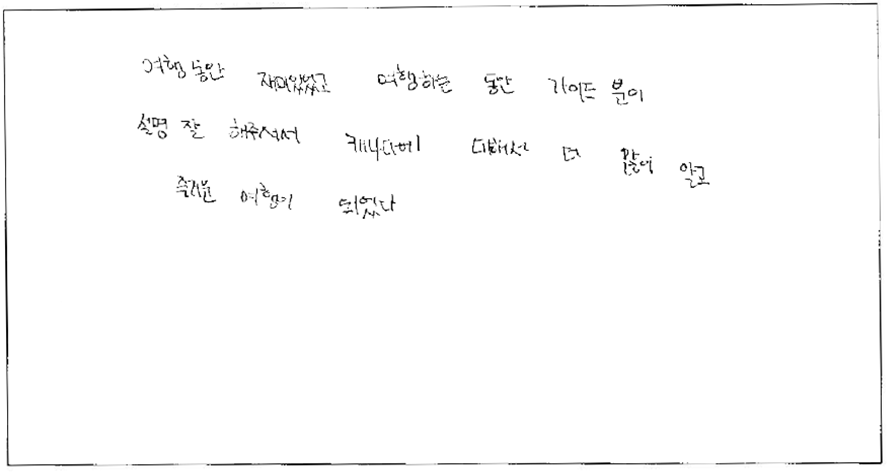 여행 동안 재미있었고 여행하는 동안 가이드 분이
설명 잘 해주셔서 캐나다에 대해서 더 많이 알고
즐거운 여행이 되었다